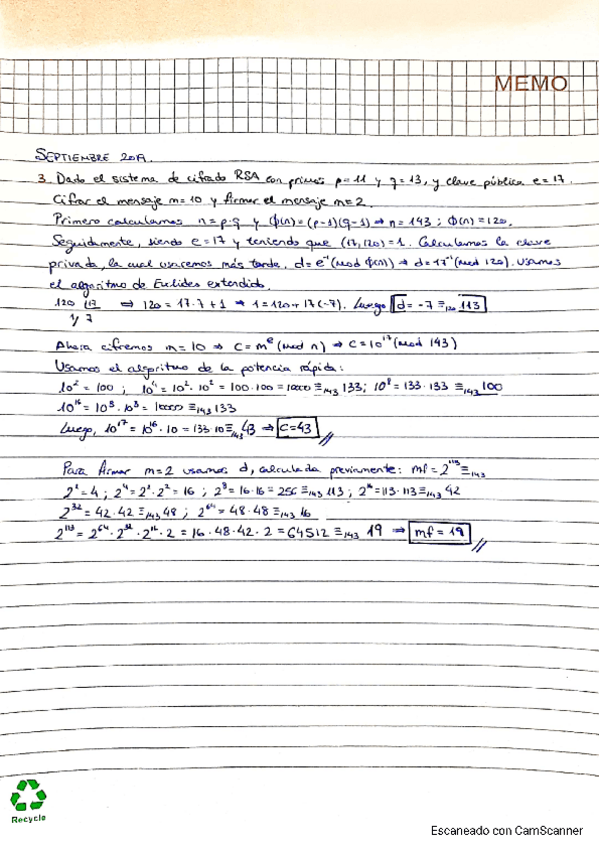 MEMO
SEPTIEMBRE 2019.
3. Dado el sistema de cifrado RSA con primos p=11 y q=13, y clave pública e=17.
Cifrar el mensaje m=10 y firmar el mensaje m=2.
Primero calculamos n=p·q y Φ(n)=(p-1)(q-1) ⇒ n=143; Φ(n)=120.
Seguidamente, siendo e=17 y teniendo que (17,120)=1. Calculamos la clave
privada, la cual usaremos más tarde. d=e⁻¹(mod Φ(n)) ⇒ d=17⁻¹(mod 120). Usamos
el algoritmo de Euclides extendido.
120 |17 ⇒ 120=17·7+1 ⇒ 1=120+17(-7). Luego d=-7≡₁₂₀ 113
1/ 7
Ahora ciframos m=10 ⇒ C=mᵉ(mod n) ⇒ C=10¹⁷(mod 143)
Usamos el algoritmo de la potencia rápida:
10²=100; 10⁴=10²·10²=100·100=10000≡₁₄₃133; 10⁸=133·133≡₁₄₃100
10¹⁶=10⁸·10⁸=10000≡₁₄₃133
Luego, 10¹⁷=10¹⁶·10=133·10≡₁₄₃43 ⇒ C=43 //
Para firmar m=2 usamos d, calculada previamente: mf=2¹¹³≡₁₄₃
2²=4; 2⁴=2²·2²=16; 2⁸=16·16=256≡₁₄₃113; 2¹⁶=113·113≡₁₄₃42
2³²=42·42≡₁₄₃48; 2⁶⁴=48·48≡₁₄₃16
2¹¹³=2⁶⁴·2³²·2¹⁶·2=16·48·42·2=64512≡₁₄₃19 ⇒ mf=19 //
Recycle
Escaneado con CamScanner